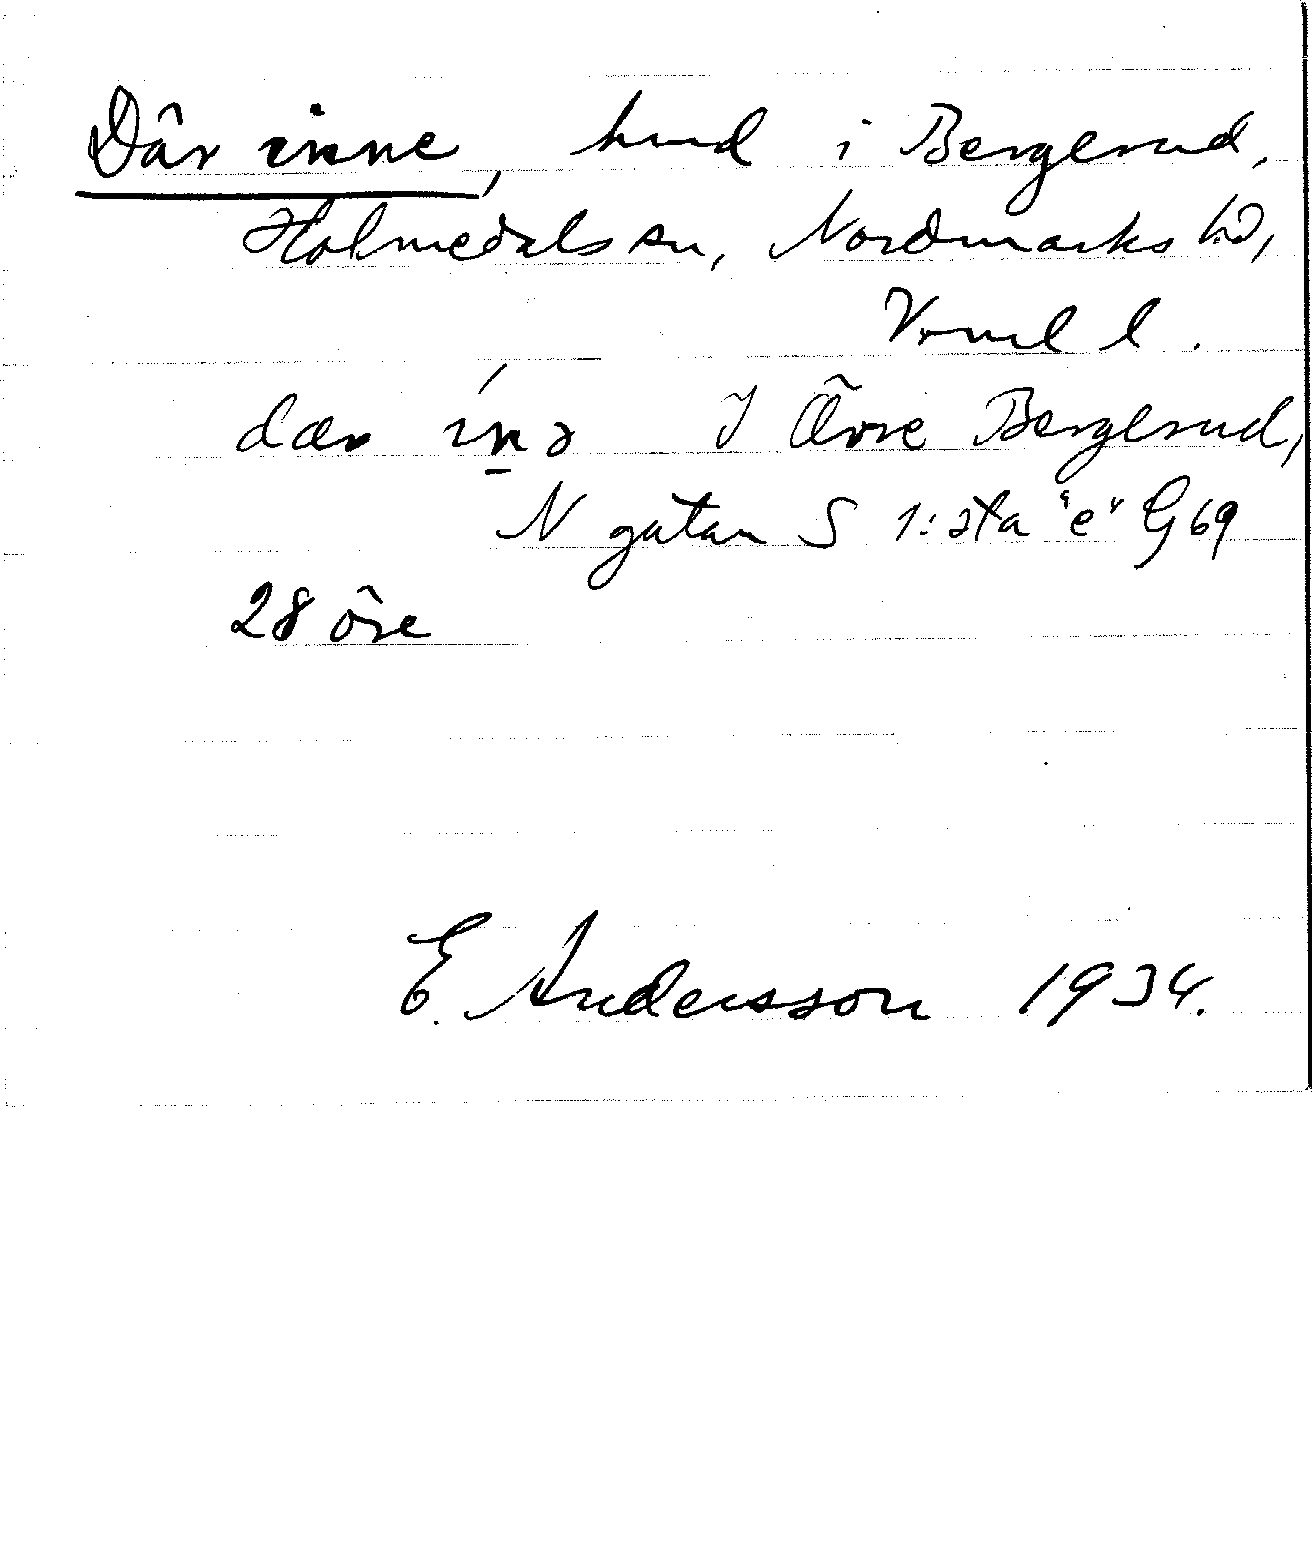 Där inne, hmd i Bergerud,
Holmedals sn, Nordmarks hd,
Vrml l.
dær inə I Övre Bergerud,
N gatan S 1:sta "e" G 69
28 öre
E. Andersson 1934.